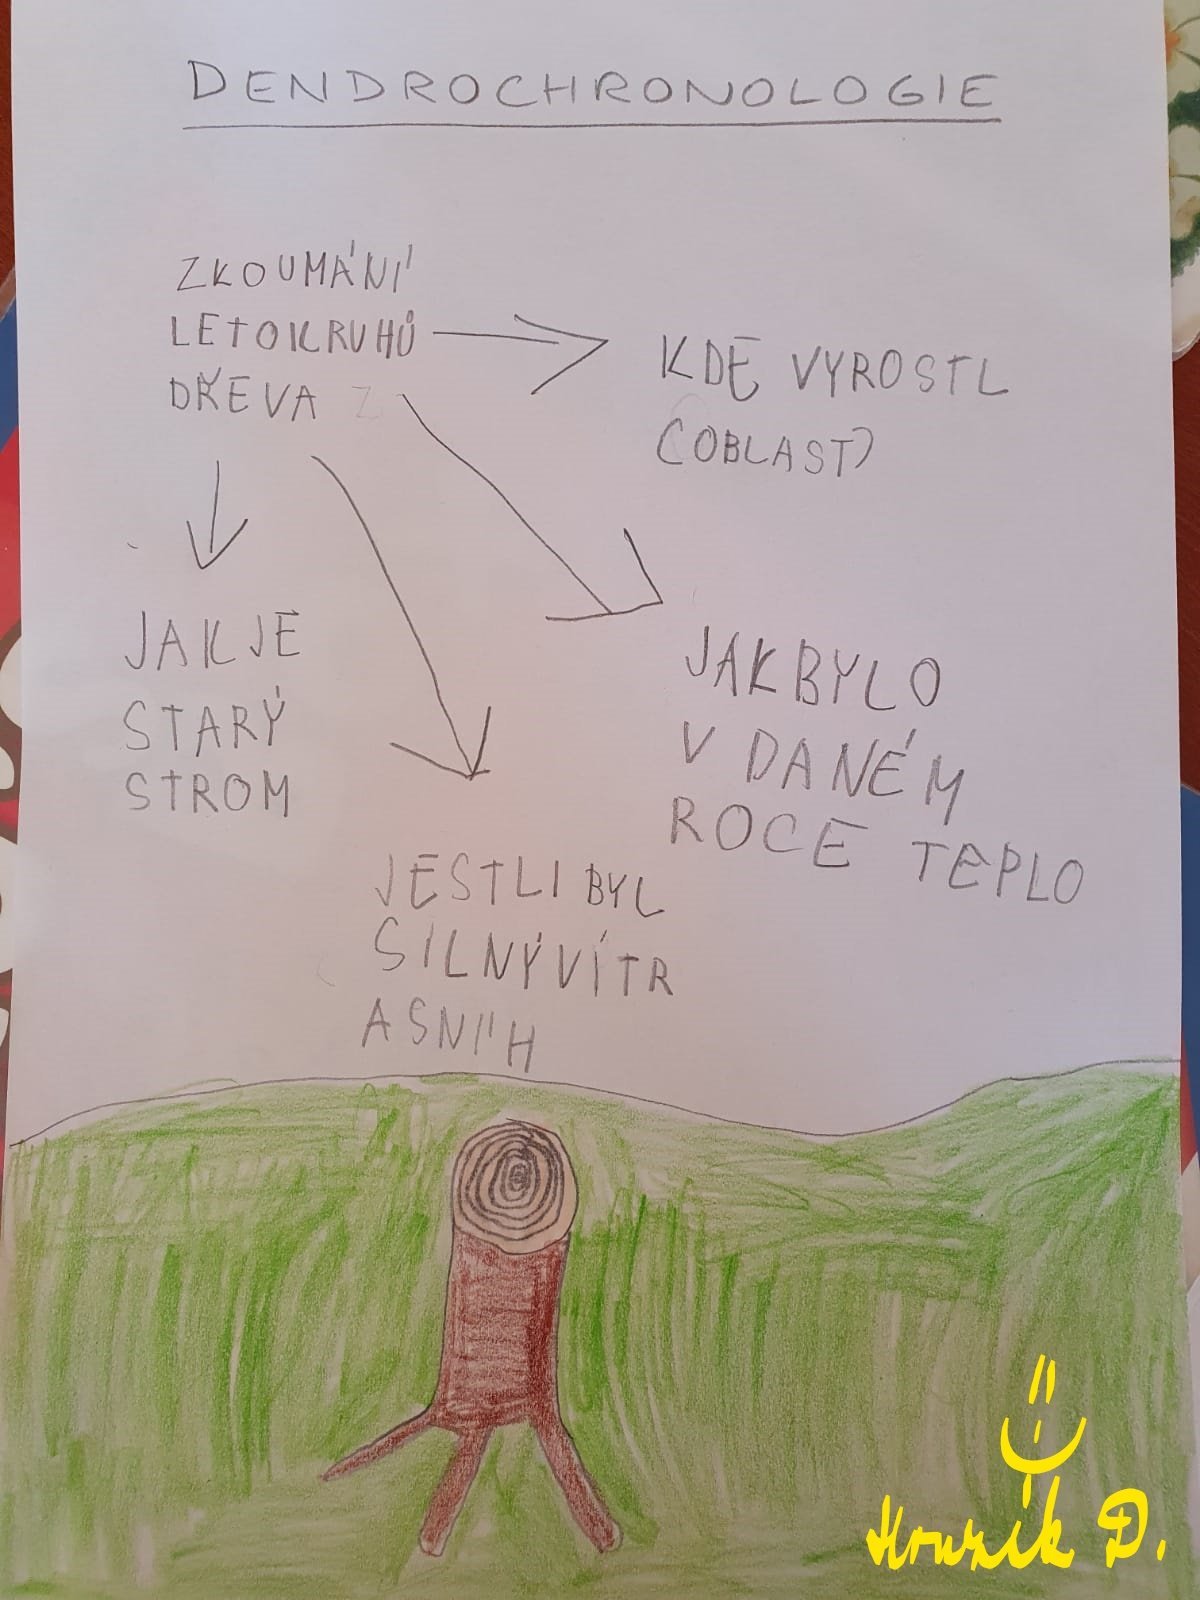 DENDROCHRONOLOGIE
ZKOUMÁNÍ
LETOKRUHŮ
DŘEVA Z
KDE VYROSTL
(OBLAST)
JAK JE
STARÝ
STROM
JAK BYLO
V DANÉM
ROCE TEPLO
JESTLI BYL
SILNÝ VÍTR
A SNÍH
D.